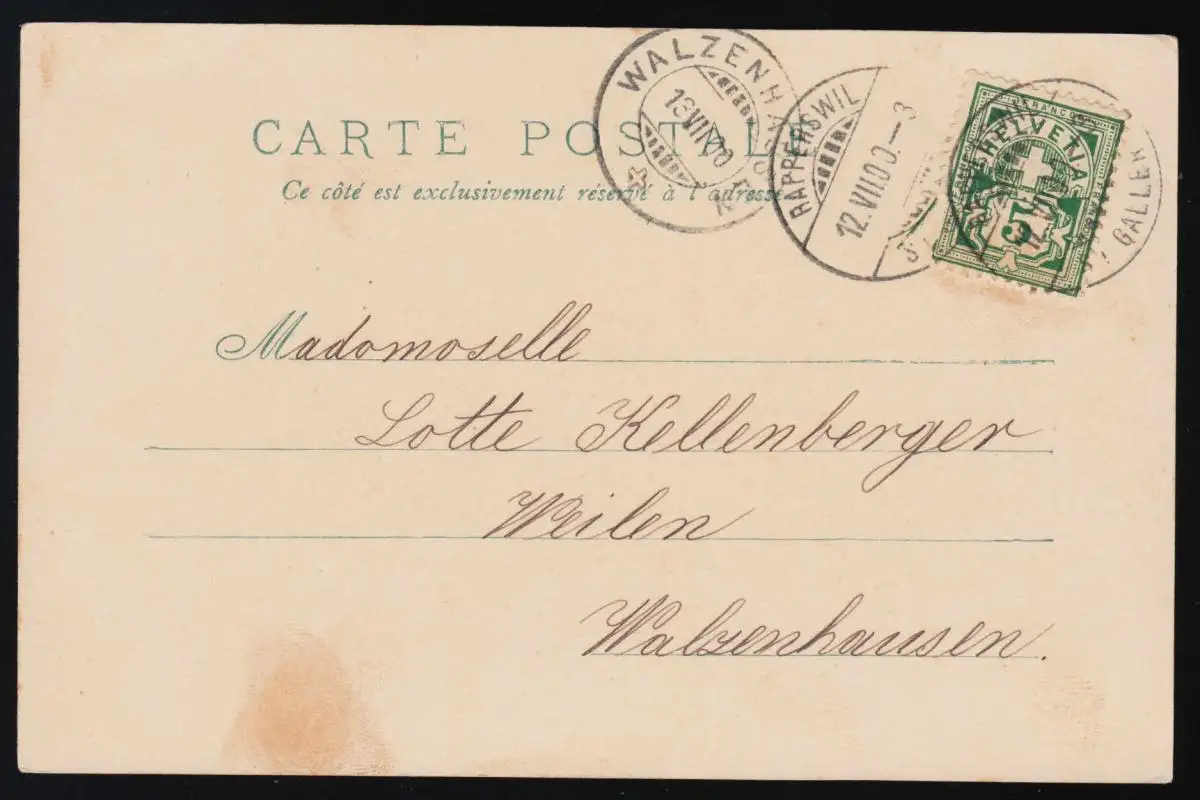 CARTE POSTALE
Ce côté est exclusivement réservé à l'adresse
WALZENHAUSEN
13 VII 00
RAPPERSWIL
12.VII.00.-3
FRANCO
HELVETIA
5
12 VII
GALLEN
Madomoselle
Lotte Kellenberger
Weilen
Walzenhausen.